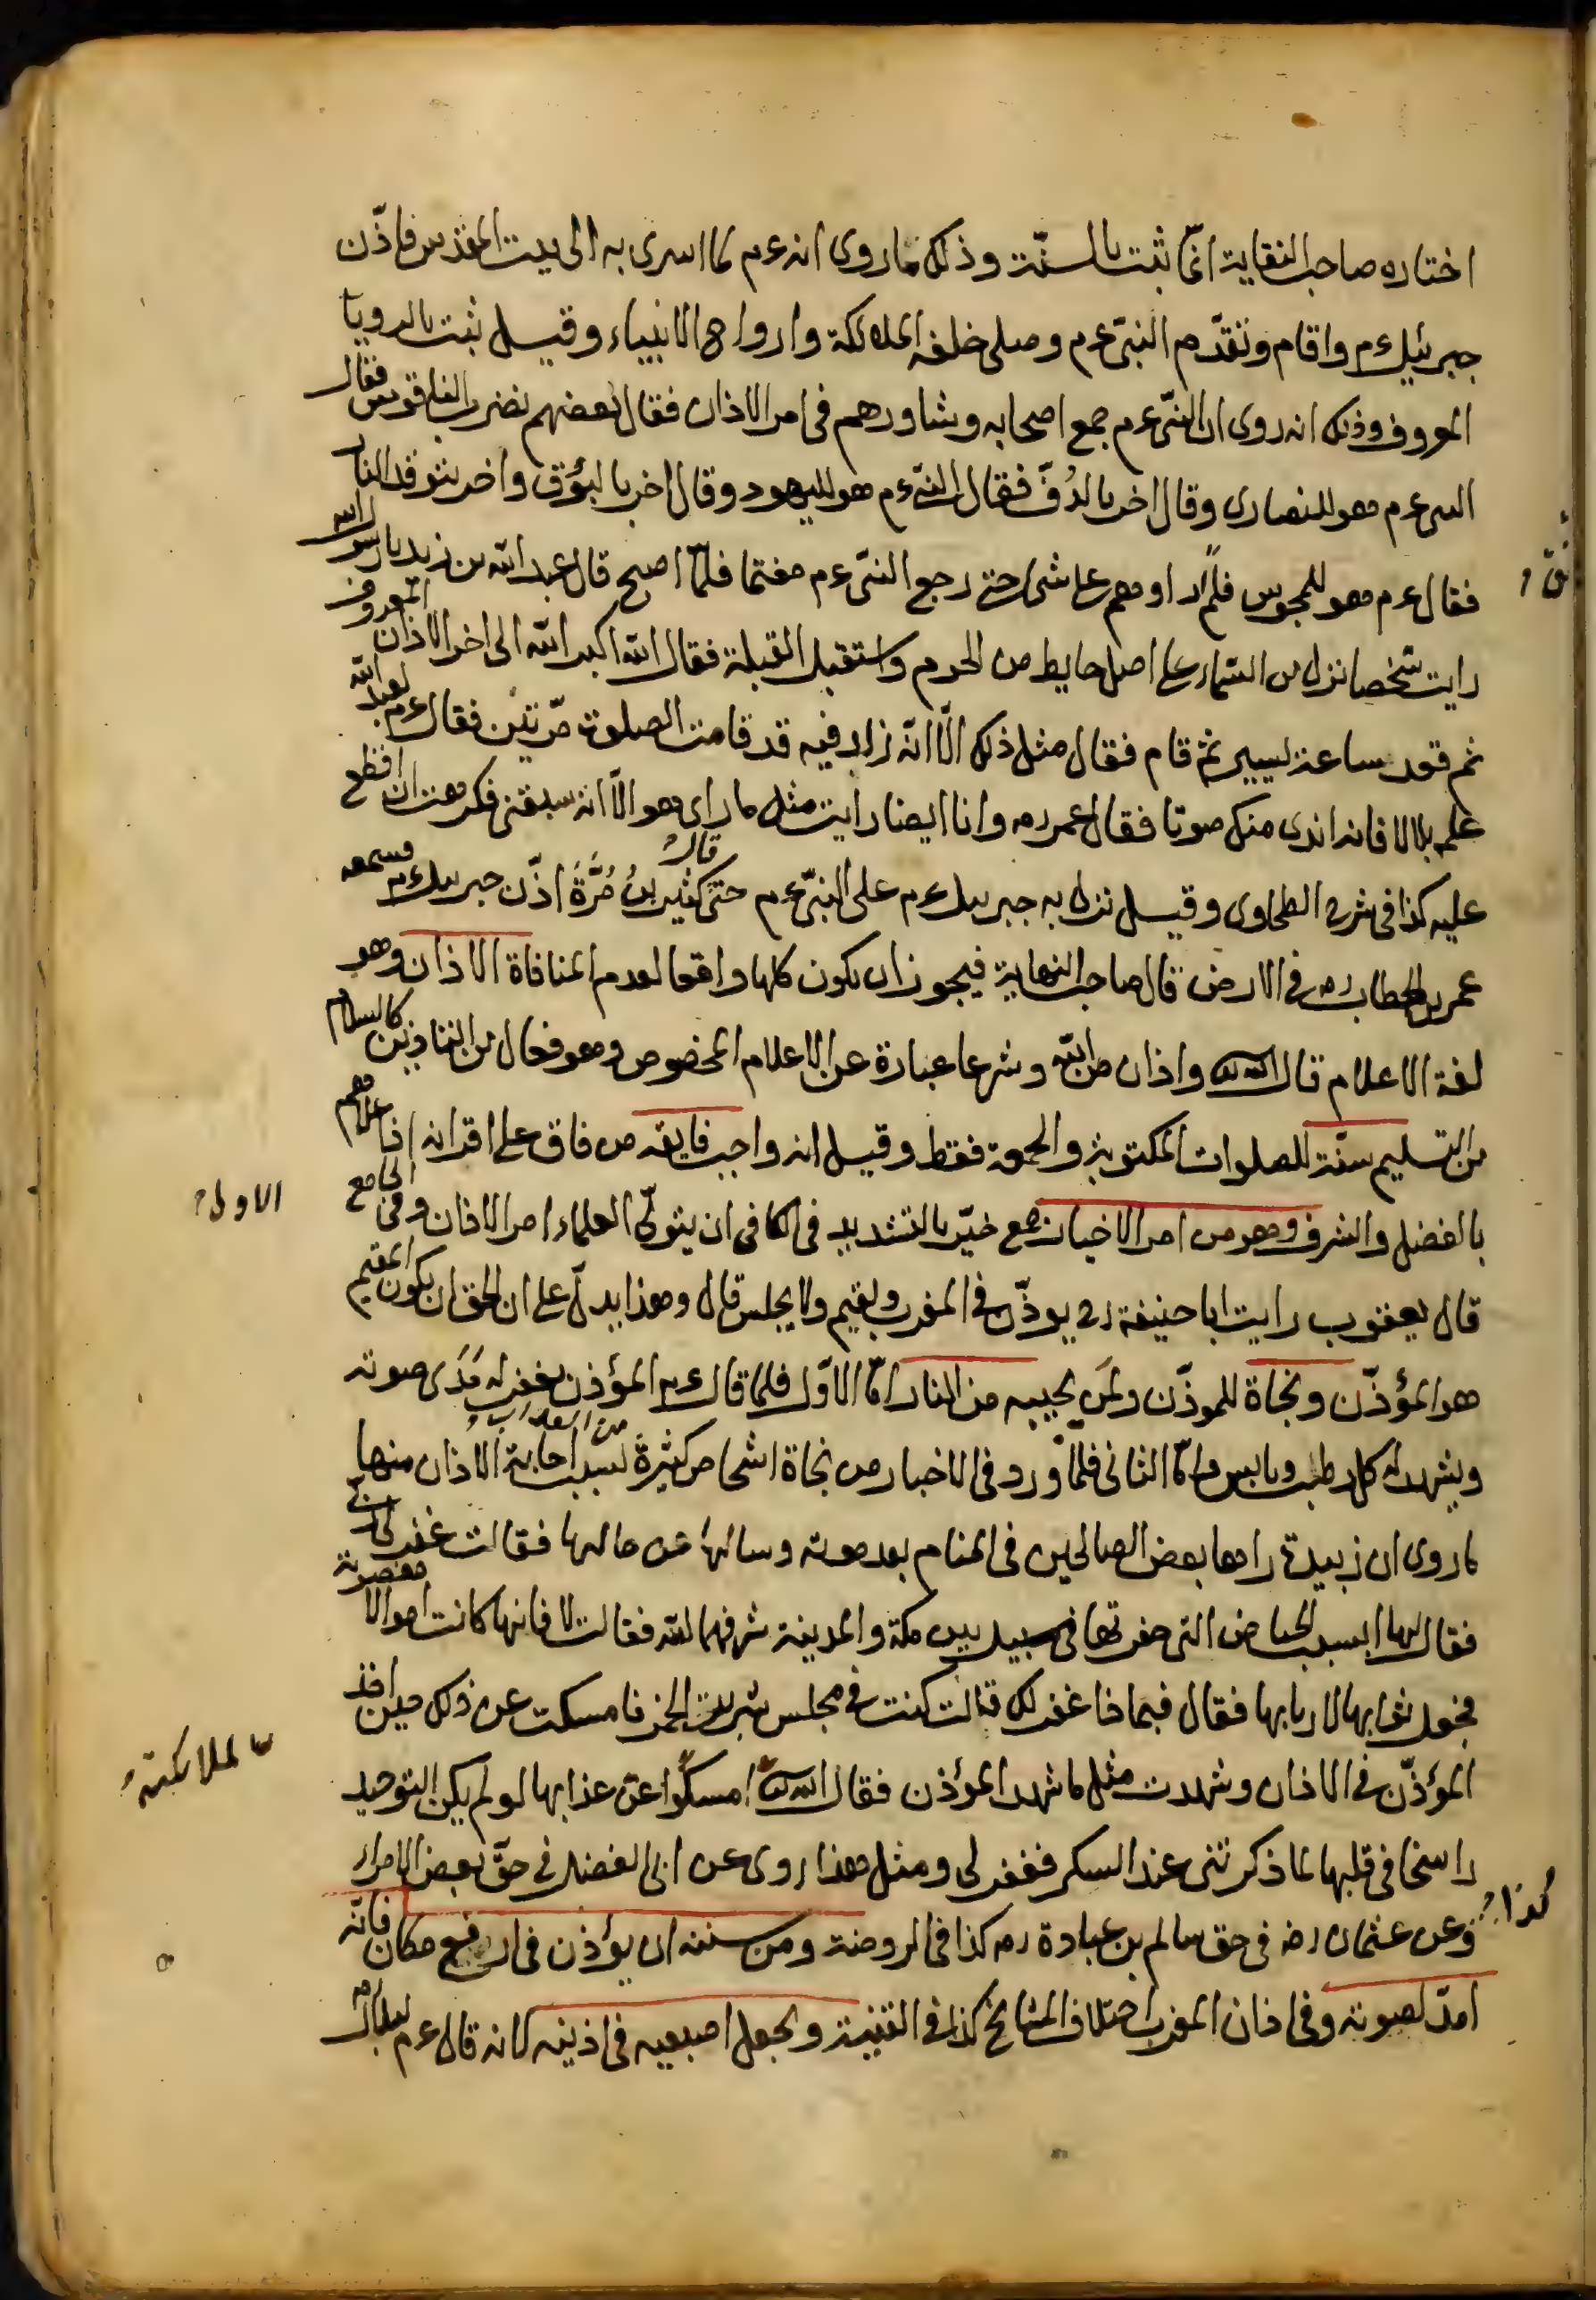 اختاره صاحب النقاية انما ثبت بالسنة وذلك ما روى انه ءم لما اسرى به الى بيت المقدس فاذّن
جبرئيل ءم واقام وتقدّم النبى ءم وصلى خلفه الملائكة وارواح الانبياء وقيل ثبت بالرويا
المعروف وذلك انه روى ان النبى ءم جمع اصحابه وشاورهم فى امر الاذان فقال بعضهم نضرب الناقوس فقال
النبى ءم هو للنصارى وقال اخر بالدُفّ فقال النبى ءم هو لليهود وقال اخر بالبُوق واخر بتوقد النار
فقال ءم هو للمجوس فلم ار اوهم على شئ حتى رجع النبى ءم مغتما فلمّا اصبح قال عبد الله بن زيد يا رسول الله
رايت شخصا نزل من السماء على اصل حايط من الحرم واستقبل القبلة فقال الله اكبر الله الى اخر الاذان المعروف
ثم قعد ساعة ليسير ثم قام فقال مثل ذلك الّا انّه زاد فيه قد قامت الصلوة مرّتين فقال ءم لعبد الله
علمه بلالا فانه اندى منك صوتا فقال عمر رم وانا ايضا رايت مثل ما راى هو الّا انه سبقنى فكرهت ان اقطع
عليه كذا فى شرح الطحاوى وقيل نزل به جبريل ءم على النبى ءم حتى قال كثير بن مُرَّةَ اذّن جبريل ءم فسمعه
عمر بن الخطاب رم فى الارض قال صاحب النهاية فيجوز ان يكون كلها واقعا لعدم المنافاة الاذان وهو
لغة الاعلام قال الله تعالى واذان من الله وشرعا عبارة عن الاعلام المخصوص وهو فعال من التاذين كالسلام
من التسليم سنّة للصلوات المكتوبة والجمعة فقط وقيل انه واجب فايقه من فاق على اقرانه اذا علاهم
بالفضل والشرف وهو من امر الاخيار جمع خيّر بالتشديد فى الكافى ان يتولّى العلماء امر الاذان وفى الجامع
قال يعقوب رايت ابا حنيفة رح يوذّن فى المغرب ويقيم ولا يجلس قال وهذا يدلّ على ان الحق ان يكون المقيم
هو المؤذّن ونجاة للموذّن ولمن يجيبه من النار امّا الاوّل فلما قال ءم المؤذن يغفر له مَدَى صوته
ويشهد له كل رطب ويابس وامّا الثانى فلما ورد فى الاخبار من نجاة اشخاص كثيرة من العذاب بسبب اجابة الاذان منها
ما روى ان زبيدة راها بعض الصالحين فى المنام بعد موته وسالها عن حالها فقالت غفر لى ربى
فقال لها ابسبب الحياض التى حفرتها فى سبيل بين مكة والمدينة شرفهما الله فقالت لا فانها كانت اموالا مغصوبة
فجعل ثوابها لاربابها فقال فبما ذا غفر لك قالت كنت فى مجلس شرب الخمر فامسكت عن ذلك حين اخذ
المؤذّن فى الاذان وشهدت مثل ما شهد المؤذن فقال الله تعالى امسكوا عن عذابها لو لم يكن التوحيد
راسخا فى قلبها لما ذكرتنى عند السكر فغفر لى ومثل هذا روى عن ابى الفضل فى حقّ بعض الامراء
وعن عثمان رضه فى حق سالم بن عبادة رم كذا فى الروضة ومن سننه ان يؤذن فى ارفع مكان فانّه
امدّ لصوته وفى اذان المغرب اختلاف المشايخ كذا فى القنية ويجعل اصبعيه فى اذنيه لانه قال ءم لبلال رم
الاولى
للملائكة
كذا